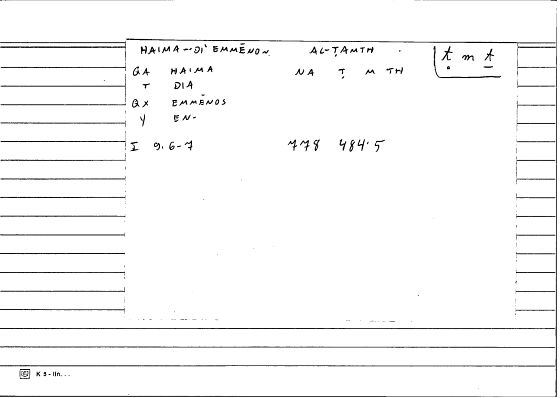 HAIMA - DI' EMMĒNON AL-ṬAMTH ṭ m t
GA HAIMA NA Ṭ M TH
T DIA
GX EMMĒNOS
Y EN-
I 9.6-7 778 484.5
K 5 - lin. . .